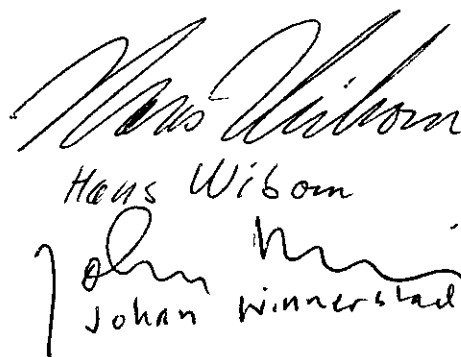 Hans Wibom
Hans Wibom
Johan
Johan Winnerstad